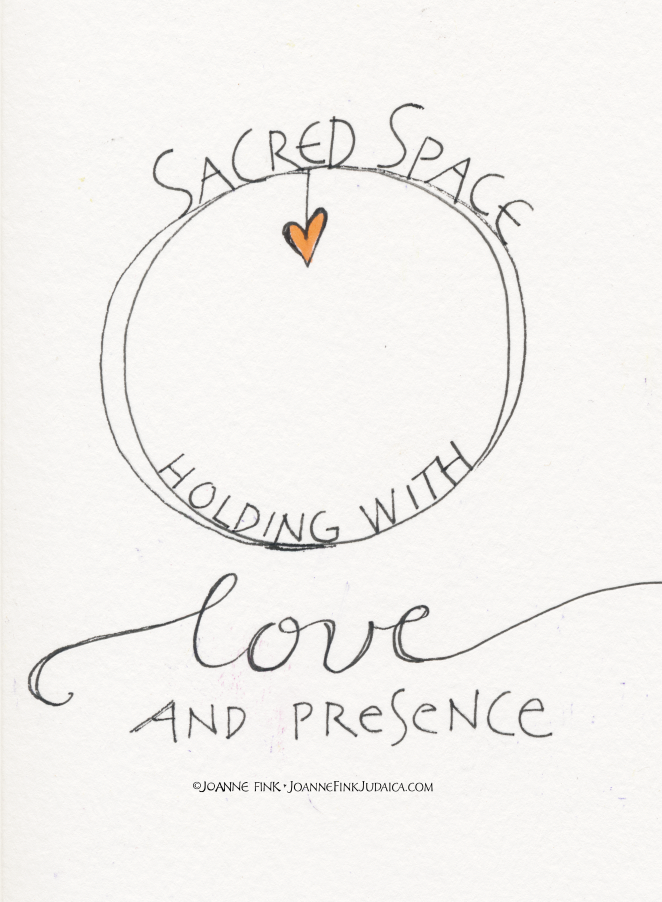 SACRED SPACE
HOLDING WITH
love
AND PRESENCE
©JOANNE FINK • JOANNEFINKJUDAICA.COM